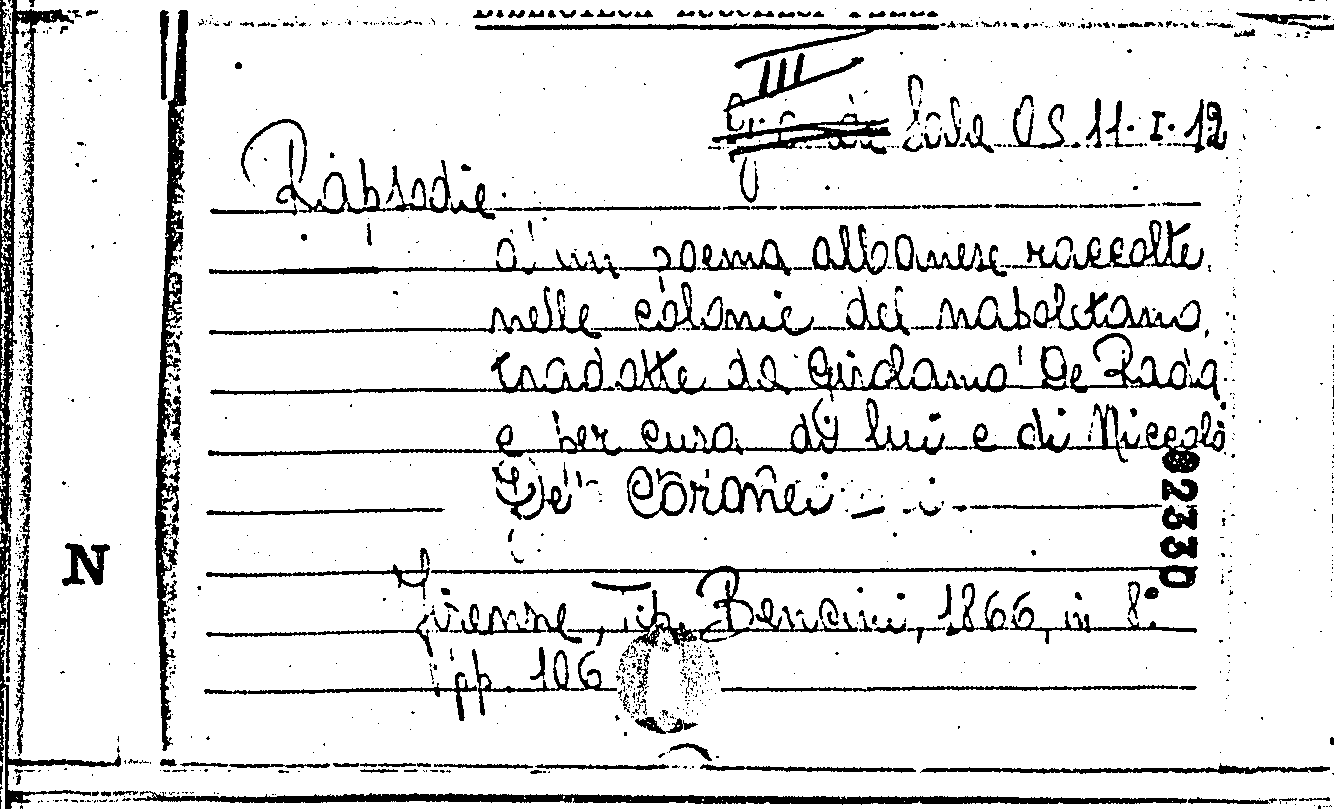 III
Sala OS. 11. I. 12
Rapsodie
d'un poema albanese raccolte
nelle colonie del napoletano,
tradotte da Girolamo De Rada
e per cura di lui e di Niccolò
De' Coronei
92330
N
Firenze, Tip. Bencini, 1866, in 8°.
pp. 106